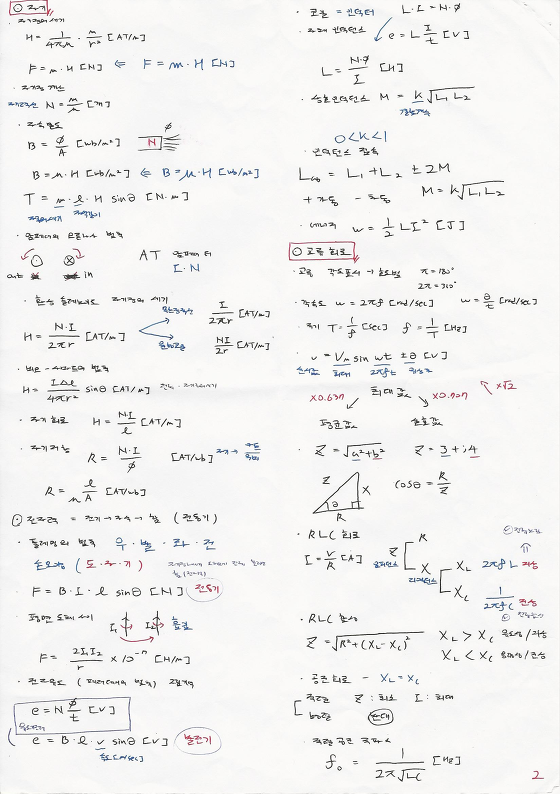 ○ 자기
· 자기장의 세기
H = 1/4πμ · m/r² [AT/m]
F = m·H [N] ⇐ F = m·H [N]
N = m/μ [개]
· 자속밀도
B = ∅/A [wb/m²] N
B = μ·H [wb/m²] ⇐ B = μ·H [wb/m²]
T = m·l·H sinθ [N·m]
· 암페어의 오른나사 법칙
out in
AT 암페어 터
I·N
· 환상 솔레노이드 자기장의 세기
H = N·I/2πr [AT/m]
I/2πr [AT/m]
NI/2r [AT/m]
· 비오-사바르의 법칙
H = IΔl/4πr² sinθ [AT/m]
· 자기 회로 H = N·I/l [AT/m]
· 자기저항 R = N·I/∅ [AT/wb]
R = l/μA [AT/wb]
○ 전자력 = 전기→자속→힘 (전동기)
· 플레밍의 법칙 우·발·좌·전
F = B·I·l sinθ [N] 전동기
· 평행 도체 사이 I₁ I₂
F = 2I₁I₂/r × 10⁻⁷ [N/m]
· 전자유도 (패러데이의 법칙)
e = N ∅/t [V]
e = B·l·v sinθ [V] 발전기
속도 m/sec
· 코일 = 인덕터 L·I = N·∅
· 자체 인덕턴스 e = L I/t [V]
L = N·∅/I [H]
· 상호인덕턴스 M = k√L₁L₂
결합계수
0<k<1
· 인덕턴스 접속
L = L₁ + L₂ ± 2M
+ 가동 - 차동 M = k√L₁L₂
· 에너지 w = 1/2 LI² [J]
○ 교류 회로
· 교류 각도표시 → 호도법 π = 180°
· 각속도 w = 2πf [rad/sec] w = θ/t [rad/sec]
· 주기 T = 1/f [sec] f = 1/T [Hz]
· v = Vm sin wt ± θ [V]
순시값 최대 2πf 위상차
×0.637 최대값 ×0.707 ×√2
평균값 실효값
· Z = √a²+b² Z = 3+j4
Z X θ R
cosθ = R/Z
· RLC 회로
I = V/R [A]
Z
임피던스
R
X
리액턴스
XL 2πfL 지상
XC 1/2πfC 진상
· RLC 합성
Z = √R²+(XL-XC)²
XL > XC 유도성/지상
XL < XC 용량성/진상
· 공진 회로 - XL = XC
직렬 Z : 최소 I : 최대
병렬 반대
· 직렬 공진 주파수
f₀ = 1/2π√LC [Hz]
2